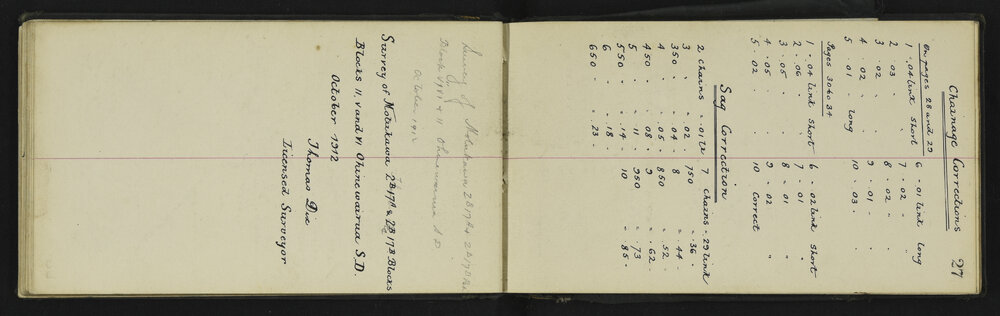 Survey of Motukawa 2B17A & 2B17B Blocks
Block VII & 11 Ohinewairua S.D.
October 1912
Survey of Motukawa 2B17A & 2B17B Blocks
Blocks II, V and VI Ohinewairua S.D.
October 1912
Thomas Dix
Licensed Surveyor
27
Chainage Corrections
On pages 28 and 29
1 . .04 link short 6 . .01 link long
2 . 03 " 7 . .02 "
3 . 02 " 8 . 02 "
4 . 02 . 9 . 01 .
5 . 01 long 10 . 03 .
Pages 30 to 34
1 . .04 link short 6 . .02 link short
2 . .06 . 7 . .01 "
3 . .05 . 8 . 01 "
4 . .05 . 9 . 02 "
5 . 02 10 Correct
Sag Correction
2 chains . .01 lk 7 chains . .29 link
3 . . 02 750 . .36 .
350 . . 04 8 . 44 .
4 . . 05 850 . 52 .
450 . . 08 9 . .62 .
5 . . 11 950 . 73
550 . . .14 . 10 . 85 .
6 . . 18 .
650 . . .23 .